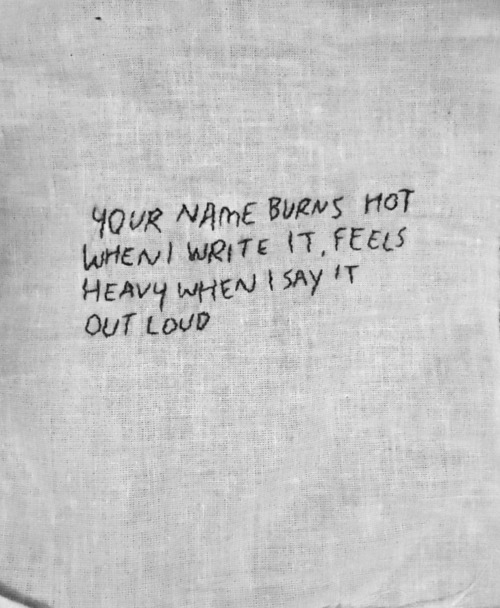 YOUR NAME BURNS HOT
WHEN I WRITE IT, FEELS
HEAVY WHEN I SAY IT
OUT LOUD